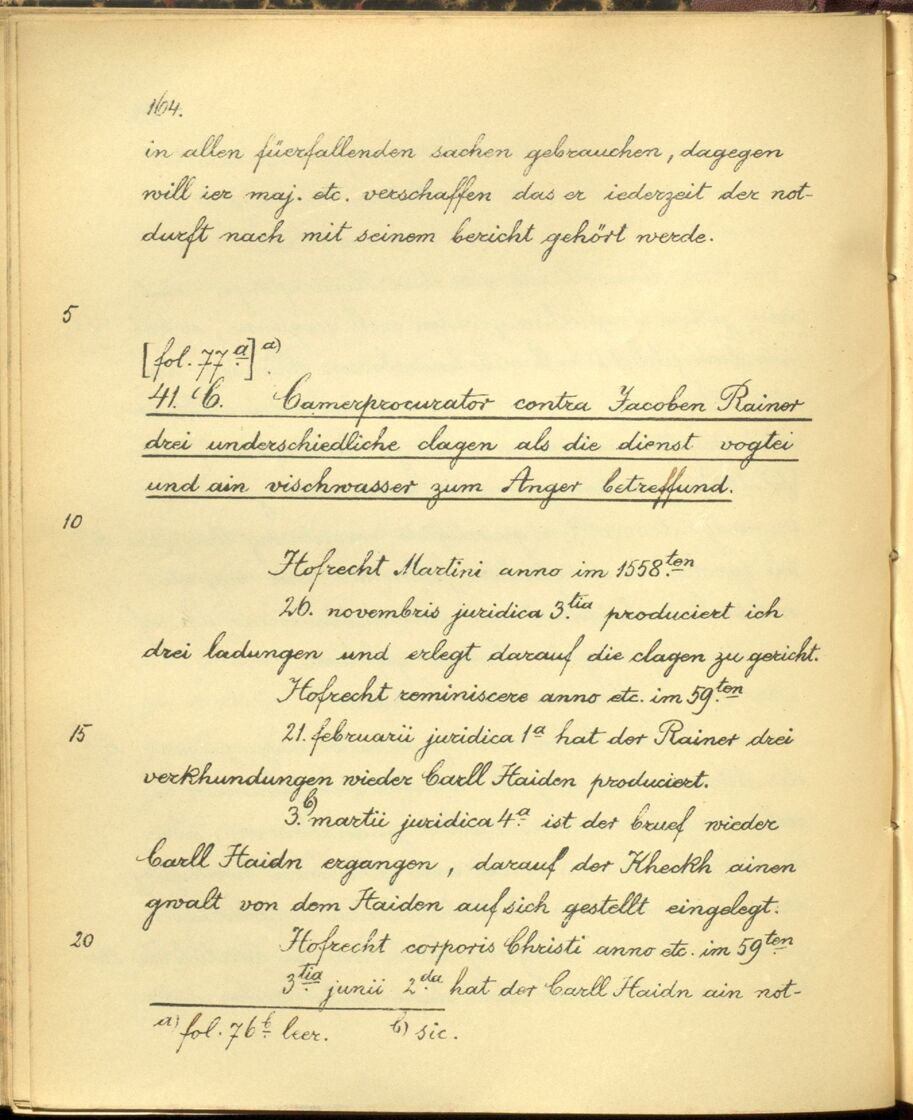 164.
in allen füerfallenden sachen gebrauchen, dagegen
will ier maj. etc. verschaffen das er iederzeit der not-
durft nach mit seinem bericht gehört werde.
5
[fol. 77a] a).
41. C. Camerprocurator contra Jacoben Rainer
drei underschiedliche clagen als die dienst vogtei
und ain vischwasser zum Anger betreffund.
10
Hofrecht Martini anno im 1558.ten
26. novembris juridica 3.tia produciert ich
drei ladungen und erlegt darauf die clagen zu gericht.
Hofrecht reminiscere anno etc. im 59.ten
15 21. februarii juridica 1a hat der Rainer drei
verkhundungen wieder Carll Haiden produciert.
3.b) martii juridica 4.a ist der bruef wieder
Carll Haidn ergangen, darauf der Kheckh ainen
gwalt von dem Haiden auf sich gestellt eingelegt.
20 Hofrecht corporis Christi anno etc. im 59.ten
3.tia junii 2.da hat der Carll Haidn ain not-
a) fol. 76b leer. b) sic.